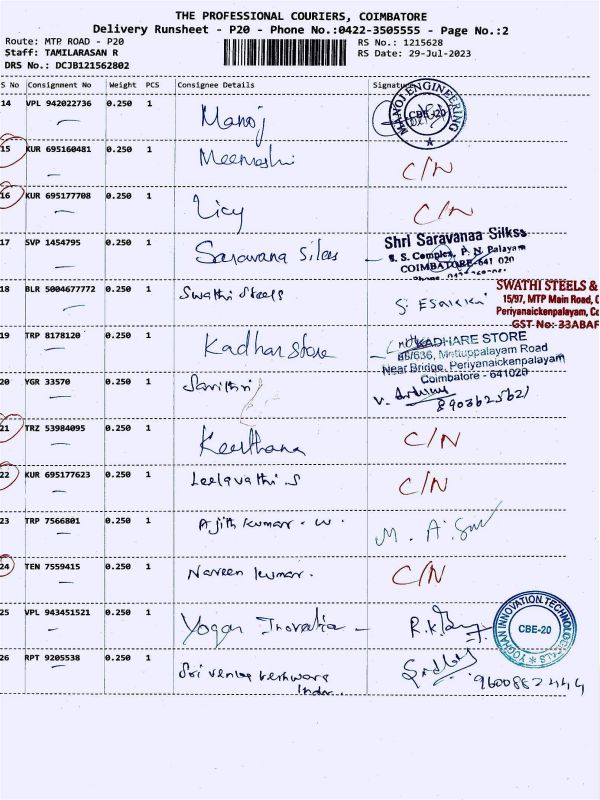 THE PROFESSIONAL COURIERS, COIMBATORE
Delivery Runsheet - P20 - Phone No.:0422-3505555 - Page No.:2
Route: MTP ROAD - P20 RS No.: 1215628
Staff: TAMILARASAN R RS Date: 29-Jul-2023
DRS No.: DCJB121562802
S No Consignment No Weight PCS Consignee Details Signatu
14 VPL 942022736 0.250 1 Manoj MANOJ ENGINEERING CBE-20
15 KUR 695160481 0.250 1 Meenashi C/N
16 KUR 695177708 0.250 1 Licy C/N
17 SVP 1454795 0.250 1 Saravana Silks
Shri Saravanaa Silkss
S. S. Complex, P. N. Palayam
COIMBATORE-641 020
18 BLR 5004677772 0.250 1 Swathi Steels
SWATHI STEELS &
15/97, MTP Main Road, C
Periyanaickenpalayam, Co
GST No: 33ABAF
19 TRP 8178120 0.250 1 Kadhar Store
KADHARE STORE
Mettuppalayam Road
Near Bridge, Periyanaickenpalayam
Coimbatore - 641020
20 YGR 33570 0.250 1 Savithri
8903625621
21 TRZ 53984095 0.250 1 Keerthana C/N
22 KUR 695177623 0.250 1 Leelavathi S C/N
23 TRP 7566801 0.250 1 Ajith kumar. W. M. A.
24 TEN 7559415 0.250 1 Naveen kumar. C/N
25 VPL 943451521 0.250 1 Yogan Inovatia R.K.
YOGHAN INNOVATION TECHNOLOGICALS CBE-20
26 RPT 9205538 0.250 1 Sri venkateshwara
9600882444